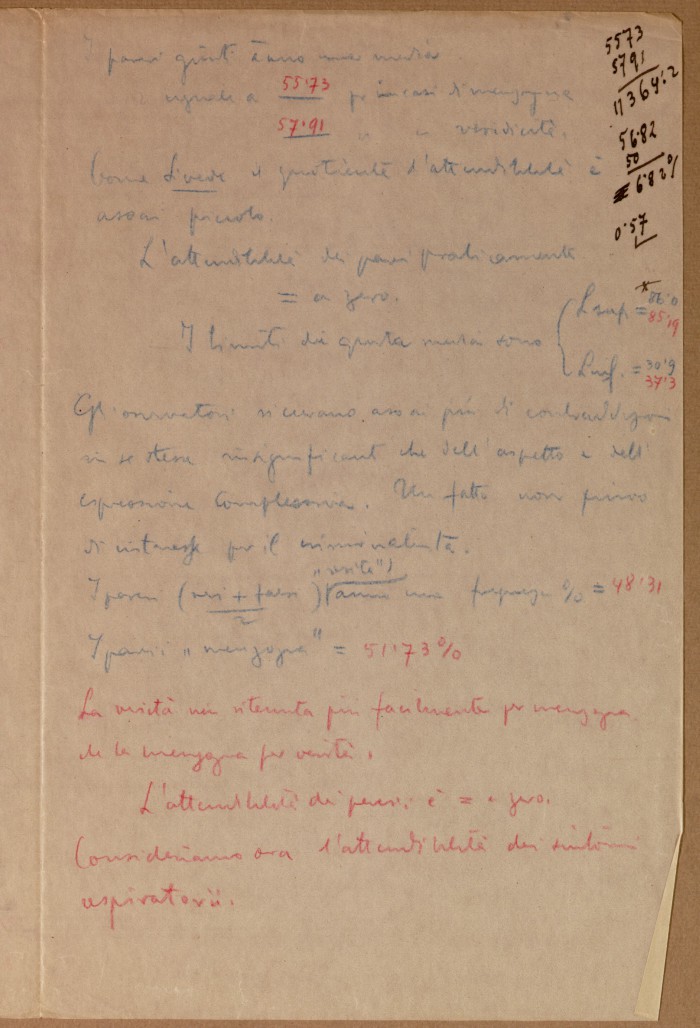 I pareri giusti ànno una media
uguale a 55·73 per i casi di menzogna
57·91 " " veridicità.
Come si vede il quoziente d'attendibilità è
assai piccolo.
L'attendibilità dei pareri praticamente
= a zero.
I limiti di questa media sono
L sup. = 86·0
85·19
L inf. = 30·9
37·3
Gli osservatori si curano assai più di contraddizioni
in se stesse insignificanti che dell'aspetto e dell'
espressione complessiva. Un fatto non privo
di interesse per il criminalista.
I pareri (veri + falsi) "verità") ànno una frequenza % = 48·31
2
I pareri "menzogna" = 51·73%
La verità vien ritenuta più facilmente per menzogna
che la menzogna per verità.
L'attendibilità dei pareri è = a zero.
Consideriamo ora l'attendibilità dei sintomi
respiratorii.
5573
5791
11364:2
5682
50
6·82%
0·57